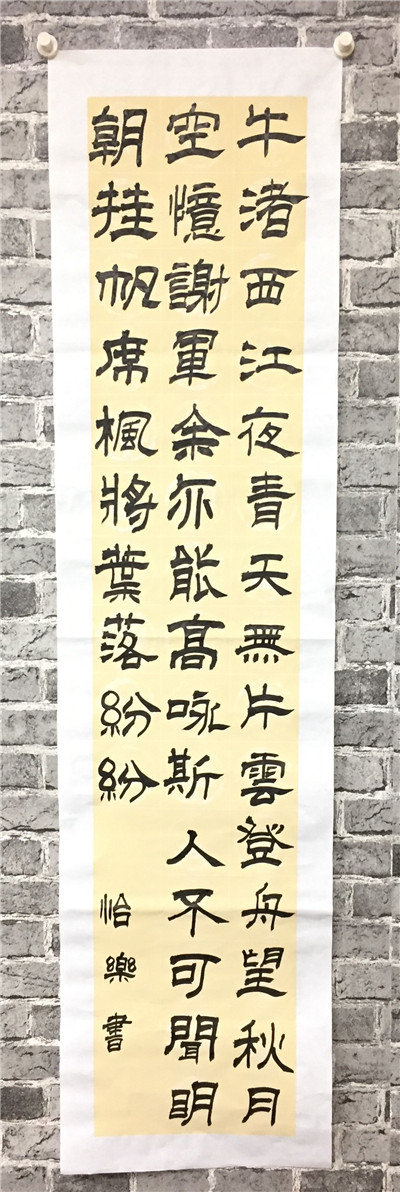 牛渚西江夜青天無片雲登舟望秋月
空憶謝軍余亦能高咏斯人不可聞明
朝挂帆席楓將葉落紛紛
怡樂書